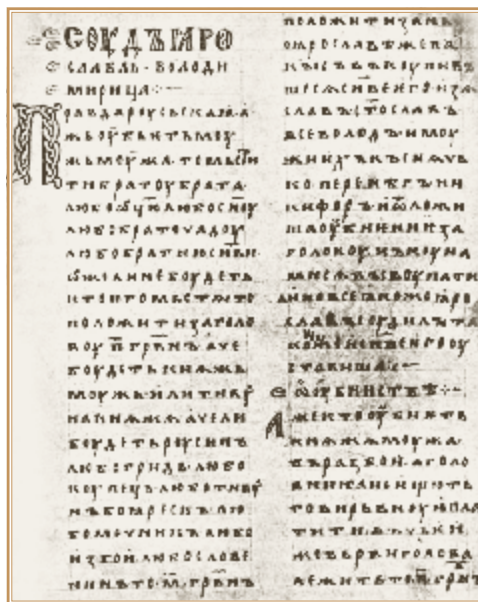 СОУДЪ ꙖРО
СЛАВЛЬ · ВОЛОДИ
МИРИЦА ·
Правда роусьскаꙗ · а
жь оубьѥть моу
жь моужа · то мьсти
ти братоу брата
любо ѿцю любо сн҃оу
любо братоучадоу
любо братню сн҃ви
ѡже ли не боудеть
кто ѥго мьстѧ то
положити за голо
воу · п҃ · грвн҃ъ аче
боудеть кнѧжь
моужь или тивоу
на кнѧжа аче ли
боудеть роусинъ
любо гридь любо
коупець любо тивоу
нъ боѧрескъ лю
бо мечникъ любо
изгои любо слове
нинъ то · м҃ · гривнъ
положити за нь ·
по ꙗрославѣ же па
кы съвъкоупивъ
шесѧ сн҃ве ѥго изѧ
славъ ст҃ославъ
всеволодъ и моу
жи ихъ къснѧчь
ко перенѣгъ ни
кифоръ и ѿложи
ша оубиениѥ за
головоу нъ коуна
ми сѧ выкоупати
а ино все ꙗкоже ꙗро
славъ соудилъ та
коже и сн҃ве ѥго оу
ставиша ·
ѡ оубииствѣ ·
Аже кто оубиѥть
кнѧжа моужа
въ разбои а голо
вника не ищють
то вирьвноую пла
тити въ чьеи
же вьрви голова
лежить то п҃ грвн҃ъ